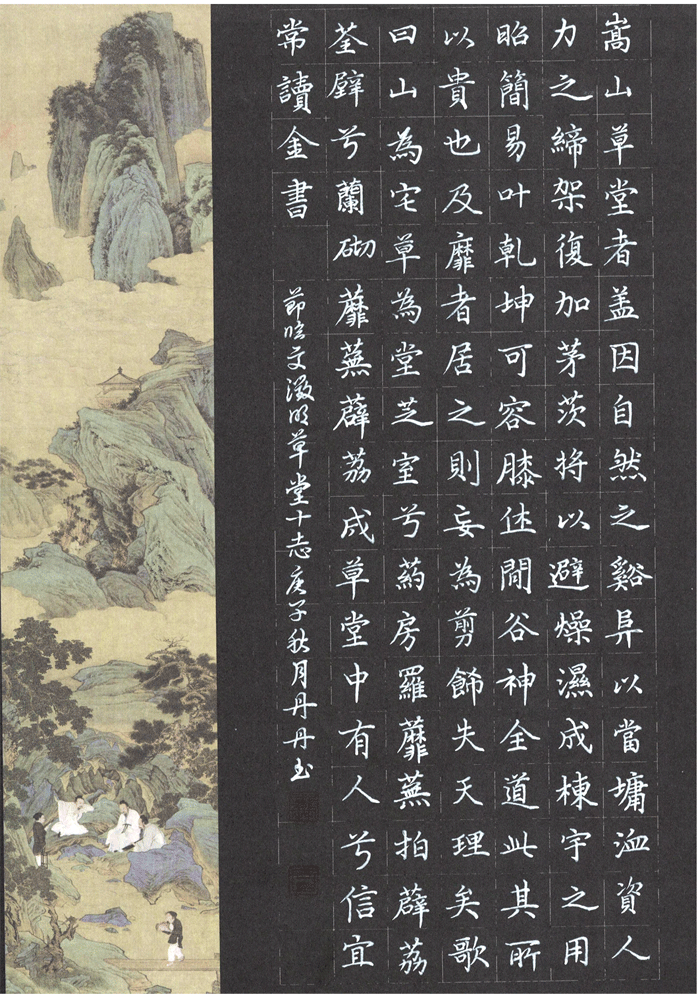 嵩山草堂者盖因自然之谿阜以當墉洫資人
力之締架復加茅茨将以避燥濕成棟宇之用
昭簡易叶乾坤可容膝休閒谷神全道此其所
以貴也及靡者居之則妄為剪飾失天理矣歌
曰山為宅草為堂芝室兮葯房羅蘼蕪拍薜荔
荃壁兮蘭砌蘼蕪薜荔成草堂中有人兮信宜
常讀金書
節临文徵明草堂十志庚子秋月丹丹书